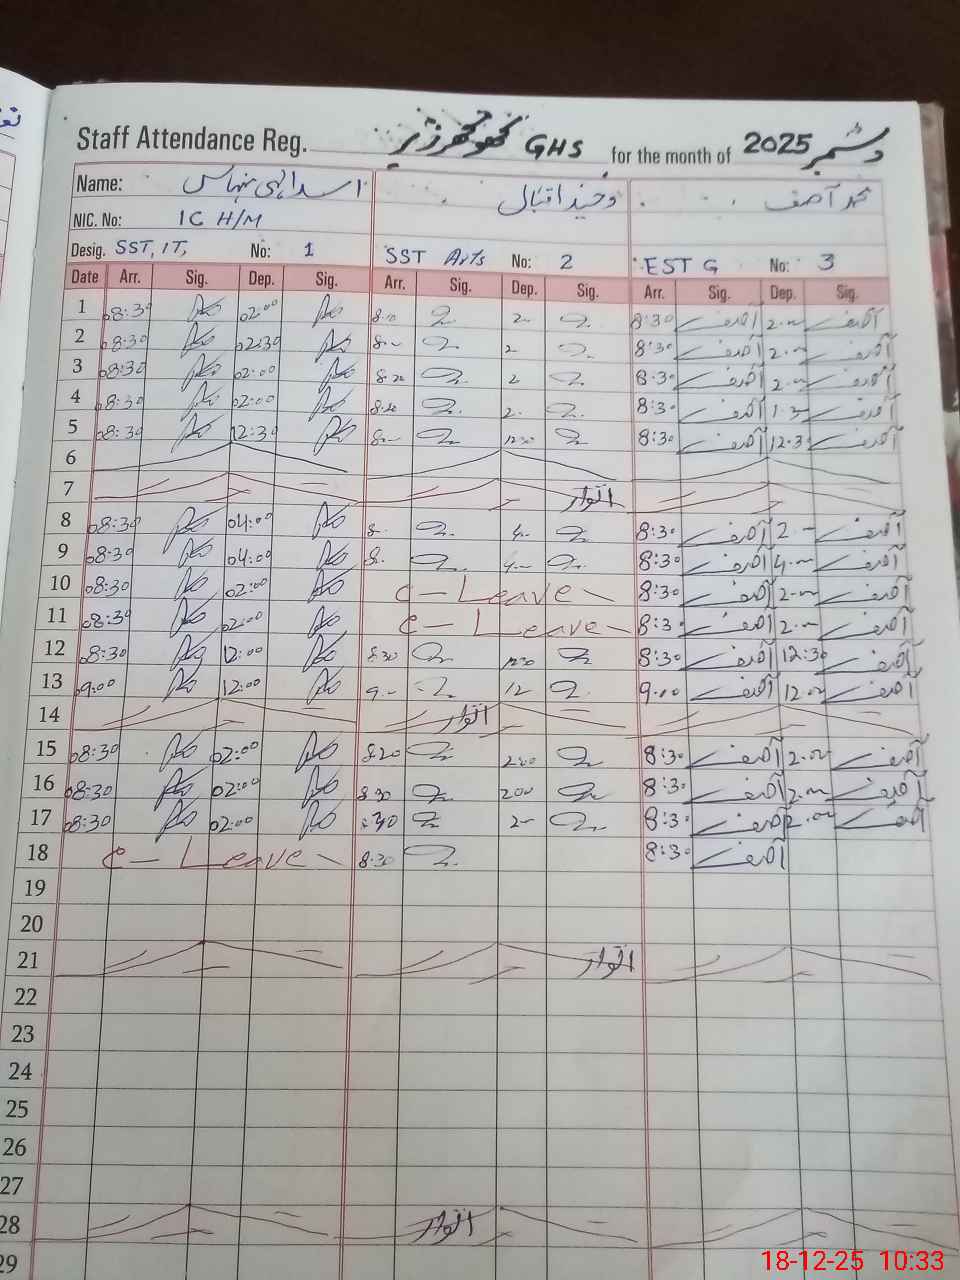 Staff Attendance Reg. GHS for the month of دسمبر 2025
Name: وحید اقبال محمد آصف
NIC. No: IC H/M
Desig. SST, IT, No: 1 SST Arts No: 2 EST G No: 3
Date Arr. Sig. Dep. Sig. Arr. Sig. Dep. Sig. Arr. Sig. Dep. Sig.
1 08:30 02:00 2 8:30 آصف 2.00 آصف
2 08:30 02:30 2 8:30 آصف 2.00 آصف
3 08:30 02:00 8.20 2 8:30 آصف 2.00 آصف
4 08:30 02:00 8.20 2 8:30 آصف 1.30 آصف
5 08:30 12:30 12:30 8:30 آصف 12.30 آصف
6
7 اتوار
8 08:30 04:00 8 4 8:30 آصف 2.00 آصف
9 08:30 04:00 8 4 8:30 آصف 4.00 آصف
10 08:30 02:00 C-Leave 8:30 آصف 2.00 آصف
11 08:30 02:00 C-Leave 8:30 آصف 2.00 آصف
12 08:30 12:00 8.30 12:30 8:30 آصف 12:30 آصف
13 09:00 12:00 9 12 9.00 آصف 12.00 آصف
14 اتوار
15 08:30 02:00 8.20 2.00 8:30 آصف 2.00 آصف
16 08:30 02:00 8.30 2.00 8:30 آصف 2.00 آصف
17 08:30 02:00 2 8:30 آصف 2.00 آصف
18 C-Leave 8:30 8:30 آصف
19
20
21 اتوار
22
23
24
25
26
27
28 اتوار
29
18-12-25 10:33